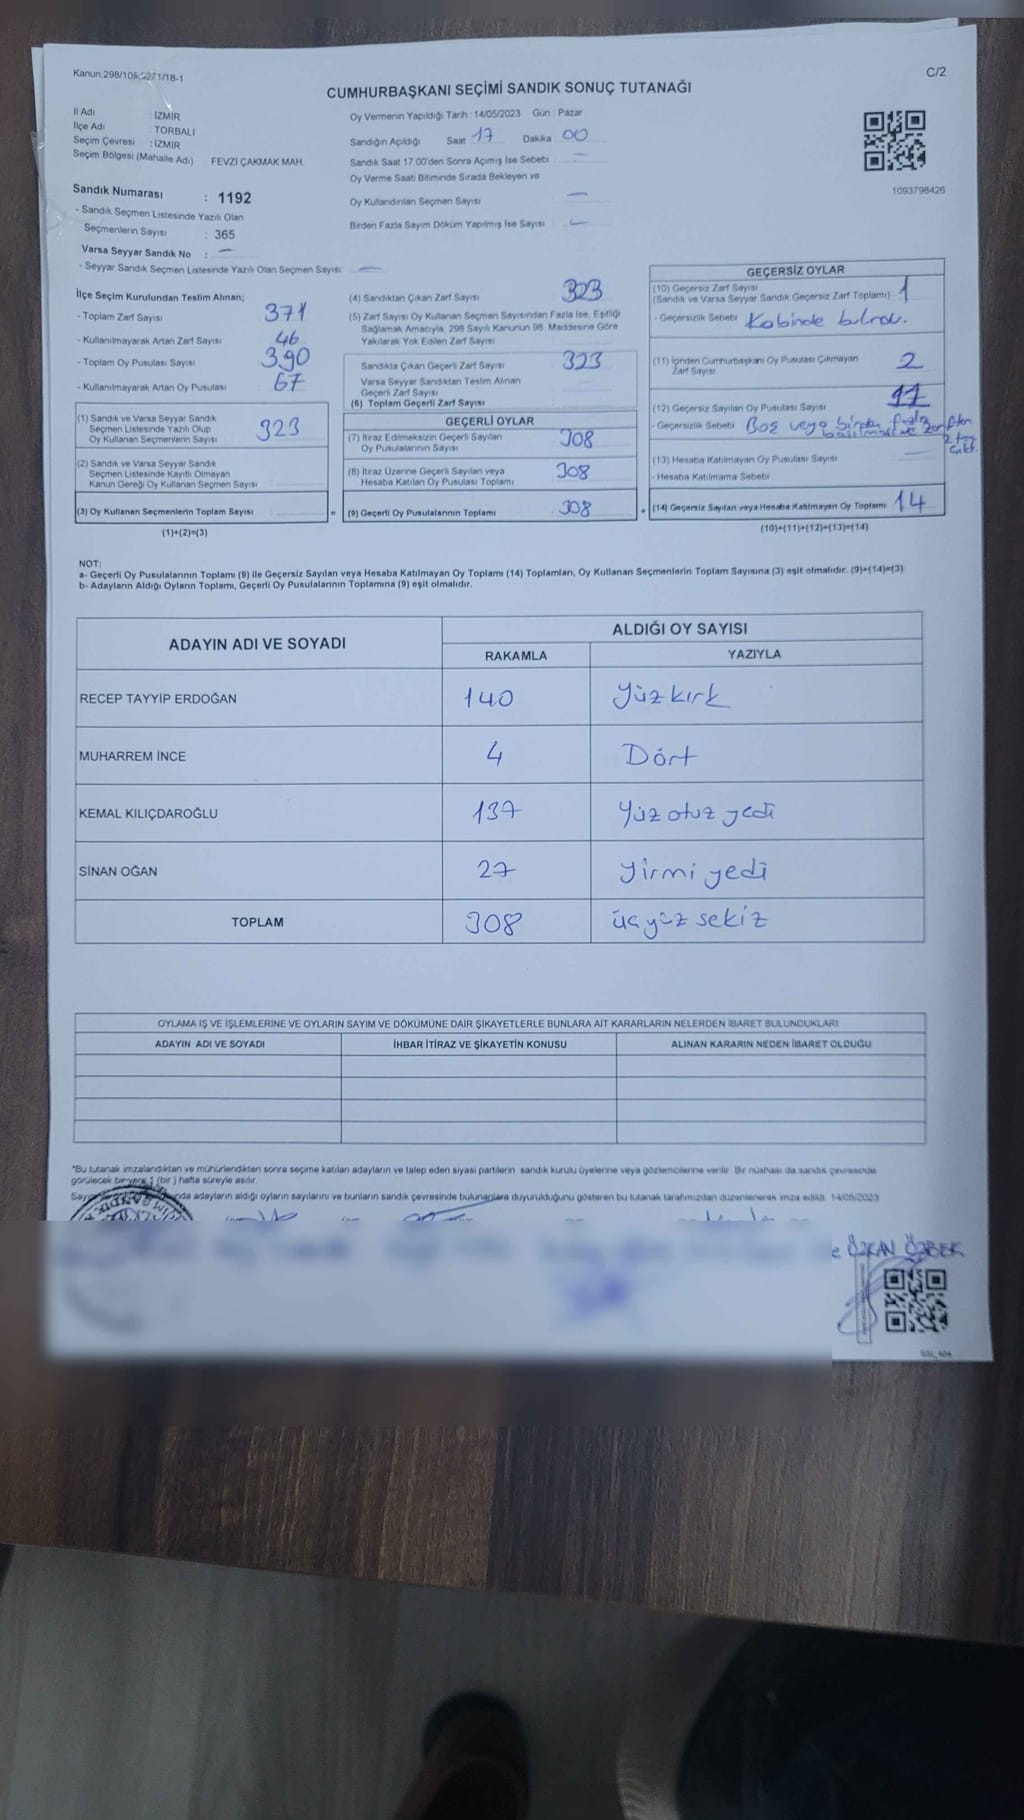 Kanun, 298/105,5271/18-1
C/2
CUMHURBAŞKANI SEÇİMİ SANDIK SONUÇ TUTANAĞI
İl Adı İZMİR
İlçe Adı TORBALI
Seçim Çevresi : İZMİR
Seçim Bölgesi (Mahalle Adı) FEVZİ ÇAKMAK MAH.
Sandık Numarası : 1192
- Sandık Seçmen Listesinde Yazılı Olan
Seçmenlerin Sayısı : 365
Varsa Seyyar Sandık No : -
- Seyyar Sandık Seçmen Listesinde Yazılı Olan Seçmen Sayısı: -
Oy Vermenin Yapıldığı Tarih : 14/05/2023 Gün : Pazar
Sandığın Açıldığı Saat 17 Dakika : 00
Sandık Saat 17:00'den Sonra Açımış İse Sebebi -
Oy Verme Saati Bitiminde Sırada Bekleyen ve
Oy Kullandırılan Seçmen Sayısı -
Birden Fazla Sayım Döküm Yapılmış İse Sayısı -
1093798426
İlçe Seçim Kurulundan Teslim Alınan;
- Toplam Zarf Sayısı 371
- Kullanılmayarak Artan Zarf Sayısı 46
- Toplam Oy Pusulası Sayısı 390
- Kullanılmayarak Artan Oy Pusulası 67
(1) Sandık ve Varsa Seyyar Sandık
Seçmen Listesinde Yazılı Olup
Oy Kullanan Seçmenlerin Sayısı 323
(2) Sandık ve Varsa Seyyar Sandık
Seçmen Listesinde Kayıtlı Olmayan
Kanun Gereği Oy Kullanan Seçmen Sayısı
(3) Oy Kullanan Seçmenlerin Toplam Sayısı :
(1)+(2)=(3)
(4) Sandıktan Çıkan Zarf Sayısı 323
(5) Zarf Sayısı Oy Kullanan Seçmen Sayısından Fazla İse, Eşitliği
Sağlamak Amacıyla, 298 Sayılı Kanunun 98. Maddesine Göre
Yakılarak Yok Edilen Zarf Sayısı
Sandıkta Çıkan Geçerli Zarf Sayısı 323
Varsa Seyyar Sandıktan Teslim Alınan
Geçerli Zarf Sayısı
(6) Toplam Geçerli Zarf Sayısı
GEÇERLİ OYLAR
(7) İtiraz Edilmeksizin Geçerli Sayılan
Oy Pusulalarının Sayısı 308
(8) İtiraz Üzerine Geçerli Sayılan veya
Hesaba Katılan Oy Pusulası Toplamı 308
= (9) Geçerli Oy Pusulalarının Toplamı 308
GEÇERSİZ OYLAR
(10) Geçersiz Zarf Sayısı
(Sandık ve Varsa Seyyar Sandık Geçersiz Zarf Toplamı) 1
- Geçersizlik Sebebi Kabinde
(11) İçinden Cumhurbaşkanı Oy Pusulası Çıkmayan
Zarf Sayısı 2
(12) Geçersiz Sayılan Oy Pusulası Sayısı
- Geçersizlik Sebebi Boş veya birden fazla
(13) Hesaba Katılmayan Oy Pusulası Sayısı -
- Hesaba Katılmama Sebebi
+ (14) Geçersiz Sayılan veya Hesaba Katılmayan Oy Toplamı 14
(10)+(11)+(12)+(13)=(14)
NOT:
a- Geçerli Oy Pusulalarının Toplamı (9) ile Geçersiz Sayılan veya Hesaba Katılmayan Oy Toplamı (14) Toplamları, Oy Kullanan Seçmenlerin Toplam Sayısına (3) eşit olmalıdır. (9)+(14)=(3)
b- Adayların Aldığı Oyların Toplamı, Geçerli Oy Pusulalarının Toplamına (9) eşit olmalıdır.
ADAYIN ADI VE SOYADI
ALDIĞI OY SAYISI
RAKAMLA YAZIYLA
RECEP TAYYİP ERDOĞAN 140 yüz kırk
MUHARREM İNCE 4 Dört
KEMAL KILIÇDAROĞLU 137 yüz otuz yedi
SİNAN OĞAN 27 yirmi yedi
TOPLAM 308 üç yüz sekiz
OYLAMA İŞ VE İŞLEMLERİNE VE OYLARIN SAYIM VE DÖKÜMÜNE DAİR ŞİKAYETLERLE BUNLARA AİT KARARLARIN NELERDEN İBARET BULUNDUKLARI
ADAYIN ADI VE SOYADI İHBAR İTİRAZ VE ŞİKAYETİN KONUSU ALINAN KARARIN NEDEN İBARET OLDUĞU
*Bu tutanak imzalandıktan ve mühürlendikten sonra seçime katılan adayların ve talep eden siyasi partilerin sandık kurulu üyelerine veya gözlemcilerine verilir. Bir nüshası da sandık çevresinde
görülecek bir yere 1 (bir ) hafta süreyle asılır.
adayların aldığı oyların sayılarını ve bunların sandık çevresinde bulunanlara duyurulduğunu gösteren bu tutanak tarafımızdan düzenlenerek imza edildi. 14/05/2023
ÖZKAN ÖZBEK